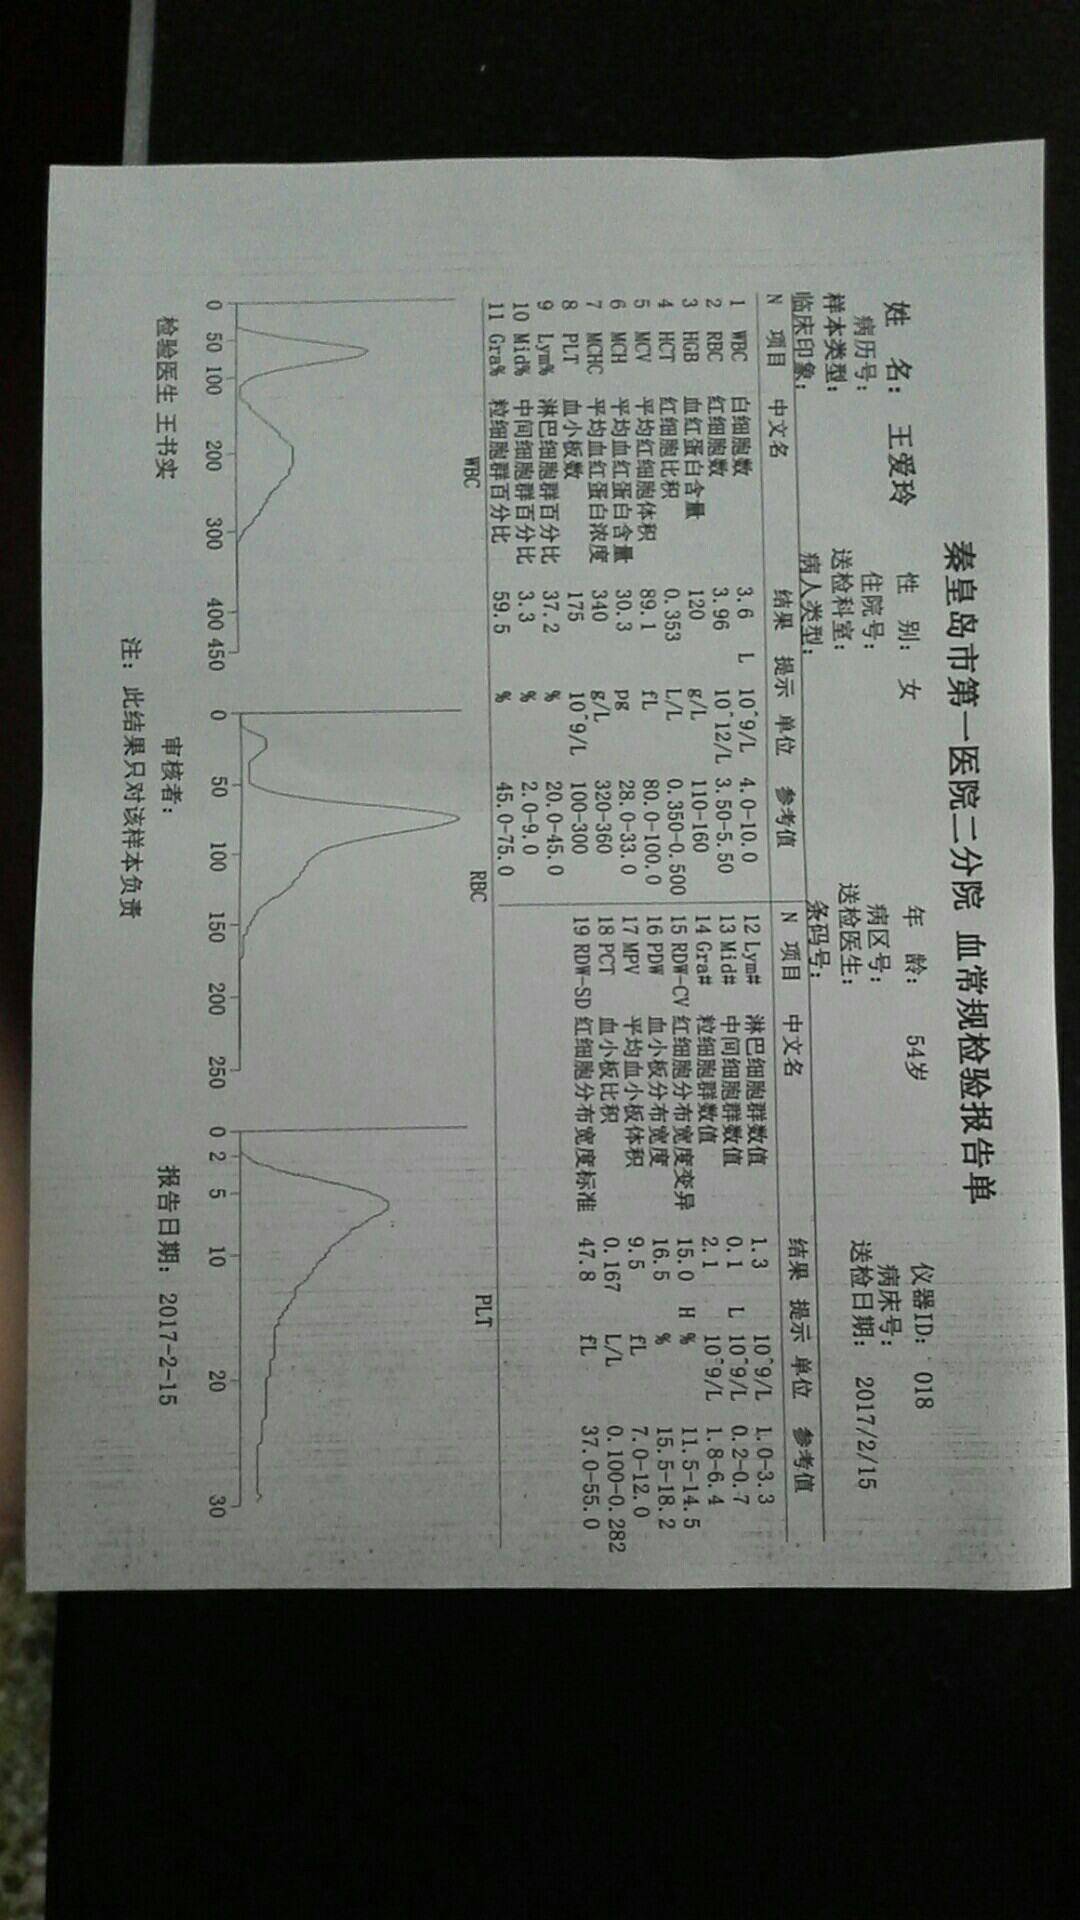 秦皇岛市第一医院二分院 血常规检验报告单
姓 名: 王爱玲 性 别: 女 年 龄: 54岁 仪器ID: 018
病历号: 住院号: 病区号: 病床号:
样本类型: 送检科室: 送检医生: 送检日期: 2017/2/15
临床印象: 病人类型: 条码号:
N 项目 中文名 结果 提示 单位 参考值 N 项目 中文名 结果 提示 单位 参考值
1 WBC 白细胞数 3.6 L 10^9/L 4.0-10.0 12 Lym# 淋巴细胞群数值 1.3 10^9/L 1.0-3.3
2 RBC 红细胞数 3.96 10^12/L 3.50-5.50 13 Mid# 中间细胞群数值 0.1 L 10^9/L 0.2-0.7
3 HGB 血红蛋白含量 120 g/L 110-160 14 Gra# 粒细胞群数值 2.1 10^9/L 1.8-6.4
4 HCT 红细胞比积 0.353 L/L 0.350-0.500 15 RDW-CV 红细胞分布宽度变异 15.0 H % 11.5-14.5
5 MCV 平均红细胞体积 89.1 fL 80.0-100.0 16 PDW 血小板分布宽度 16.5 % 15.5-18.2
6 MCH 平均血红蛋白含量 30.3 pg 28.0-33.0 17 MPV 平均血小板体积 9.5 fL 7.0-12.0
7 MCHC 平均血红蛋白浓度 340 g/L 320-360 18 PCT 血小板比积 0.167 L/L 0.100-0.282
8 PLT 血小板数 175 10^9/L 100-300 19 RDW-SD 红细胞分布宽度标准 47.8 fL 37.0-55.0
9 Lym% 淋巴细胞群百分比 37.2 % 20.0-45.0
10 Mid% 中间细胞群百分比 3.3 % 2.0-9.0
11 Gra% 粒细胞群百分比 59.5 % 45.0-75.0
WBC RBC PLT
0 50 100 200 300 400 450 0 50 100 150 200 250 0 2 5 10 20 30
检验医生 王书实 审核者: 报告日期: 2017-2-15
注: 此结果只对该样本负责